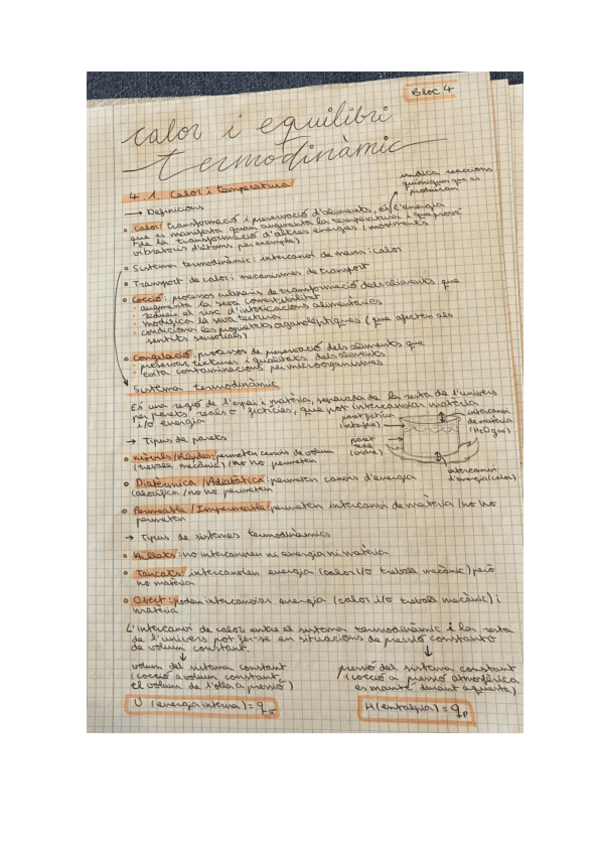 Bloc 4
calor i equilibri
termodinàmic
4.1. Calor i temperatura
indica reaccions
químiques que es
produeixen
→ Definicions
• Calor: transformació i preservació d'aliments, és l'energia
que es manifesta quan augmenta la temperatura i que prové
de la transformació d'altres energies (moviments
vibratoris d'àtoms per exemple)
• Sistema termodinàmic: intercanvi de massa i calor
• Transport de calor i mecanismes de transport
• Cocció: processos culinaris de transformació dels aliments que
• augmenta la seva comestibilitat
• redueix el risc d'intoxicacions alimentàries
• modifica la seva textura
• condiciona les propietats organolèptiques (que afecten als
sentits sensorials)
• Congelació: processos de preservació dels aliments que
• preserva textures i qualitats dels aliments
• evita contaminacions per microorganismes
Sistema termodinàmic
És una regió de l'espai i matèria, separada de la resta de l'univers
per parets reals o fictícies, que pot intercanviar matèria
i/o energia
paret fictícia
(interfase)
intercanvi
de matèria
(H2O gas)
→ Tipus de parets
paret
real
intercanvi
d'energia (calor)
• Mòbils / Rígides: permeten canvis de volum
(treball mecànic) / No ho permeten
• Diatèrmica / Adiabàtica: permeten canvis d'energia
calorífica / no ho permeten
• Permeable / Impermeable: permeten intercanvi de matèria / no ho
permeten
→ Tipus de sistemes termodinàmics
• Aïllats: no intercanvien ni energia ni matèria
• Tancats: intercanvien energia (calor i/o treball mecànic) però
no matèria
• Obert: poden intercanviar energia (calor i/o treball mecànic) i
matèria
L'intercanvi de calor entre el sistema termodinàmic i la resta
de l'univers pot fer-se en situacions de pressió constant o
de volum constant.
volum del sistema constant
(cocció a volum constant,
el volum de l'olla a pressió)
pressió del sistema constant
(cocció a pressió atmosfèrica
es manté durant aquesta)
U (energia interna) = qv
H (entalpia) = qp